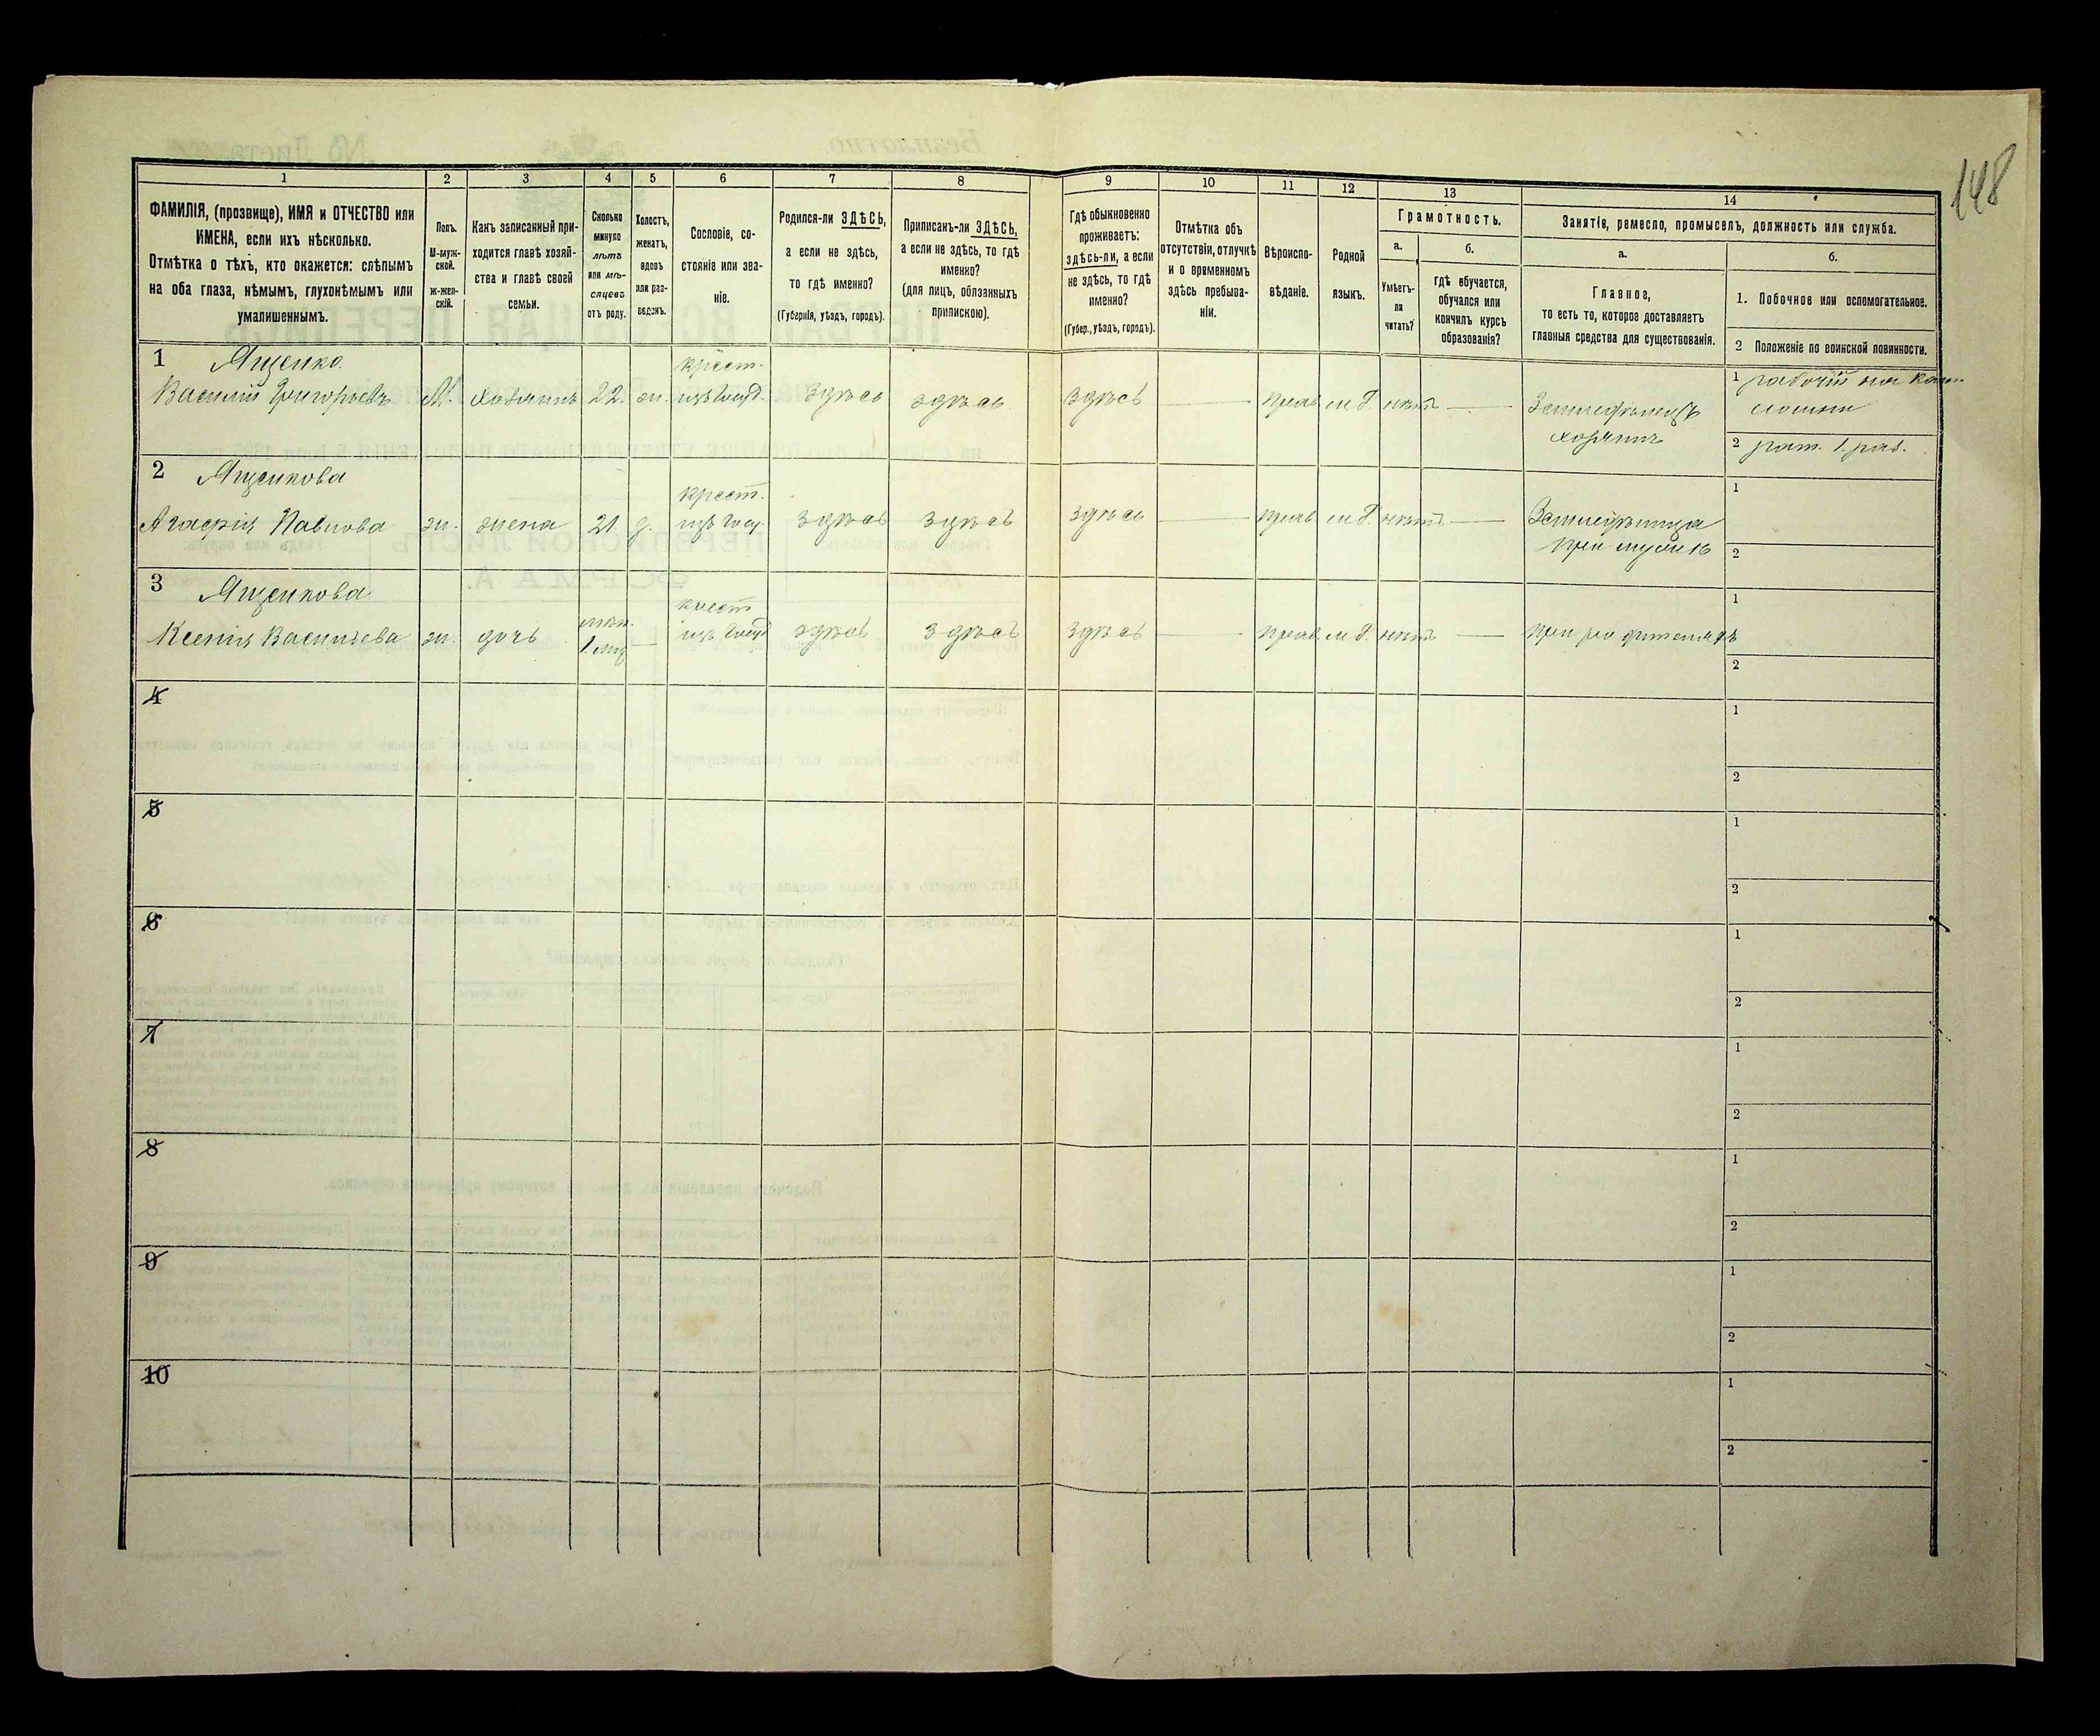 148
1 2 3 4 5 6 7 8 9 10 11 12 13 14
ФАМИЛІЯ, (прозвище), ИМЯ и ОТЧЕСТВО или
ИМЕНА, если ихъ нѣсколько.
Отмѣтка о тѣхъ, кто окажется: слѣпымъ
на оба глаза, нѣмымъ, глухонѣмымъ или
умалишеннымъ.
Полъ.
М-муж-
ской.
ж-жен-
скій.
Какъ записанный при-
ходится главѣ хозяй-
ства и главѣ своей
семьи.
Сколько
минуло
лѣтъ
или мѣ-
сяцевъ
отъ роду.
Холостъ,
женатъ,
вдовъ
или раз-
веденъ.
Сословіе, со-
стояніе или зва-
ніе.
Родился-ли ЗДѢСЬ,
а если не здѣсь,
то гдѣ именно?
(Губернія, уѣздъ, городъ).
Приписанъ-ли ЗДѢСЬ,
а если не здѣсь, то гдѣ
именно?
(для лицъ, обязанныхъ
припискою).
Гдѣ обыкновенно
проживаетъ:
здѣсь-ли, а если
не здѣсь, то гдѣ
именно?
(Губер., уѣздъ, городъ).
Отмѣтка объ
отсутствіи, отлучкѣ
и о временномъ
здѣсь пребыва-
ніи.
Вѣроиспо-
вѣданіе.
Родной
языкъ.
Грамотность.
а.
Умѣетъ-
ли
читать?
б.
гдѣ обучается,
обучался или
кончилъ курсъ
образованія?
Занятіе, ремесло, промыселъ, должность или служба.
а.
Главное,
то есть то, которое доставляетъ
главныя средства для существованія.
б.
1. Побочное или вспомогательное.
2 Положеніе по воинской повинности.
1 Ященко.
Василій Григорьевъ М. хозяинъ 22. ж. крест. изъ Госуд. Здѣсь здѣсь Здѣсь — прав м.р. нѣтъ — Земледѣлецъ
хозяинъ
1 рабочій на
2 рат. 1. раз.
2 Ященкова
Агафія Павлова ж. жена 21. крест. изъ Госу. Здѣсь Здѣсь Здѣсь — прав м.р. нѣтъ — Земледѣлица
при мужѣ
1
2
3 Ященкова
Ксенія Васильева ж. дочь 1. мѣс — крест изъ Госуд здѣсь Здѣсь Здѣсь — прав. м.р. нѣтъ — при родителяхъ
1
2
4
1
2
5
1
2
6
1
2
7
1
2
8
1
2
9
1
2
10
1
2